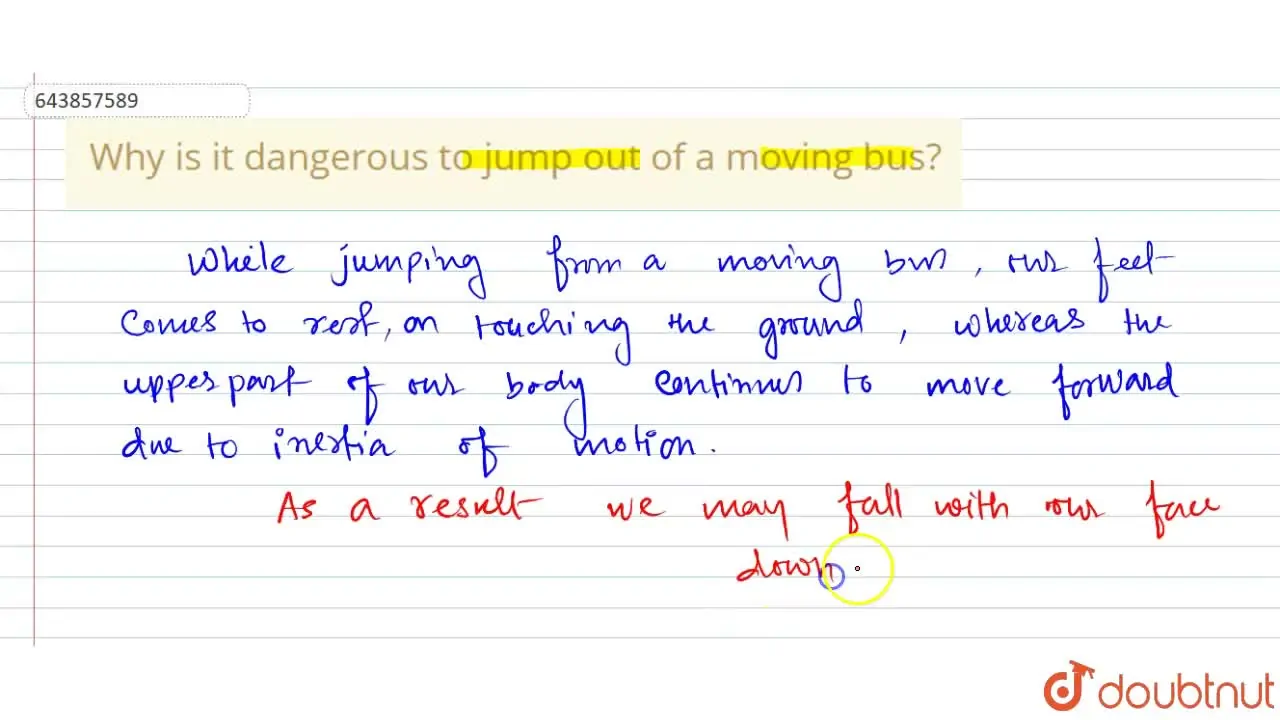 643857589
Why is it dangerous to jump out of a moving bus?
While jumping from a moving bus, our feet
comes to rest, on touching the ground, whereas the
upper part of our body continues to move forward
due to inertia of motion.
As a result we may fall with our face
down.
doubtnut